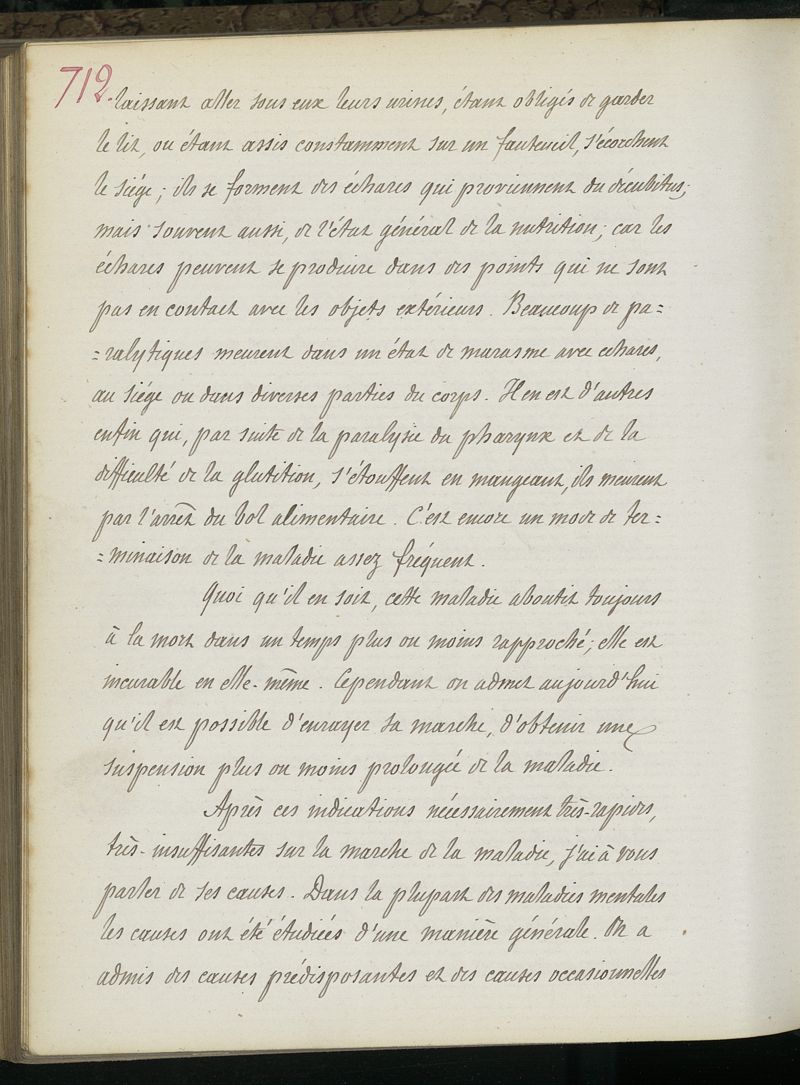 712
laissant aller sous eux leurs urines, étant obligés de garder
le lit, ou étant assis constamment sur un fauteuil, s'écorchent
le siége; ils se forment des échares qui proviennent du décubitus;
mais souvent aussi, de l'état général de la nutrition; car les
échares peuvent se produire dans des points qui ne sont
pas en contact avec les objets extérieurs. Beaucoup de pa=
=ralytiques meurent dans un état de marasme avec echares,
au siége ou dans diverses parties du corps. Il en est d'autres
enfin qui, par suite de la paralysie du pharynx et de la
difficulté de la glutition, s'étouffent en mangeant, ils meurent
par l'arrêt du bol alimentaire. C'est encore un mode de ter=
=minaison de la maladie assez fréquent.
Quoi qu'il en soit, cette maladie aboutit toujours
à la mort dans un temps plus ou moins rapproché; elle est
incurable en elle-même. Cependant on admet aujourd'hui
qu'il est possible d'enrayer sa marche, d'obtenir une
suspension plus ou moins prolongée de la maladie.
Après ces indications nécessairement très-rapides,
très-insuffisantes sur la marche de la maladie, j'ai à vous
parler de ses causes. Dans la plupart des maladies mentales
les causes ont été étudiées d'une manière générale. On a
admis des causes prédisposantes et des causes occasionnelles